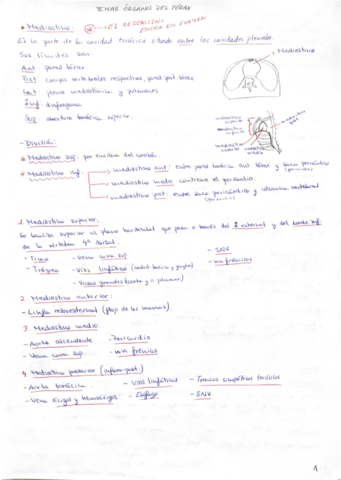 TEMA 5 ÓRGANOS DEL TÓRAX
* Mediastino:
ENTRA EN EXAMEN
Es la parte de la cavidad torácica situada entre las cavidades pleurales.
Mediastino
Sus límites son:
Ant pared tórax
Post cuerpos vertebrales respectivos, pared post tórax
Lat pleura mediastínica y pulmones
Inf diafragma
Sup abertura torácica superior.
mediastino superior
mediastino post
- División:
* Mediastino sup: por encima del corazón.
* Mediastino inf:
mediastino ant: entre pared torácica ant tórax y saco pericárdico
mediastino medio contiene el pericardio
mediastino post: entre saco pericárdico y columna vertebral
1. Mediastino superior:
Se localiza superior al plano horizontal que pasa a través del
de la vértebra 4ª dorsal.
- Timo
- Vena cava sup
- SNV
- Tráquea
- Vías linfáticas
- nn frénicos
- Vasos grandes
2 Mediastino anterior:
- Linfa retroesternal (flujo de las mamas).
3 Mediastino medio:
- Aorta ascendente
- Pericardio
- Vena cava sup
- nn frénicos
4 Mediastino posterior
- Aorta torácica
- Vías linfáticas
- Troncos simpáticos torácicos
- Vena ácigos y hemiácigos
- Esófago
- SNV
1